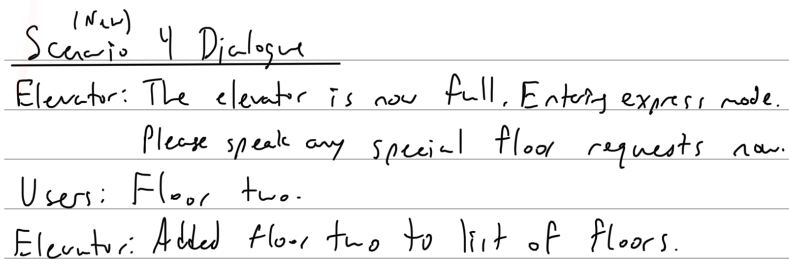 (New)
Scenario 4 Dialogue
Elevator: The elevator is now full. Entering express mode.
Please speak any special floor requests now.
Users: Floor two.
Elevator: Added floor two to list of floors.